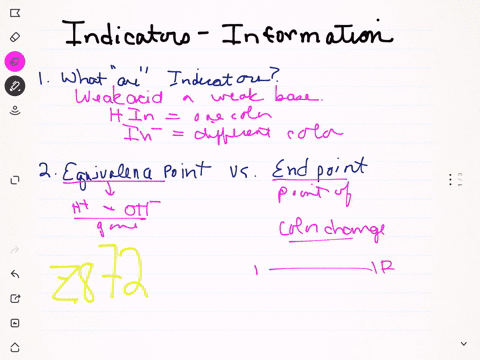 Indicators - Information
1. What "are" Indicators?
Weak acid or weak base.
HIn = one color
In⁻ = different color
2. Equivalence Point vs. End point
H⁺ or OH⁻
gone
point of
color change
Z872